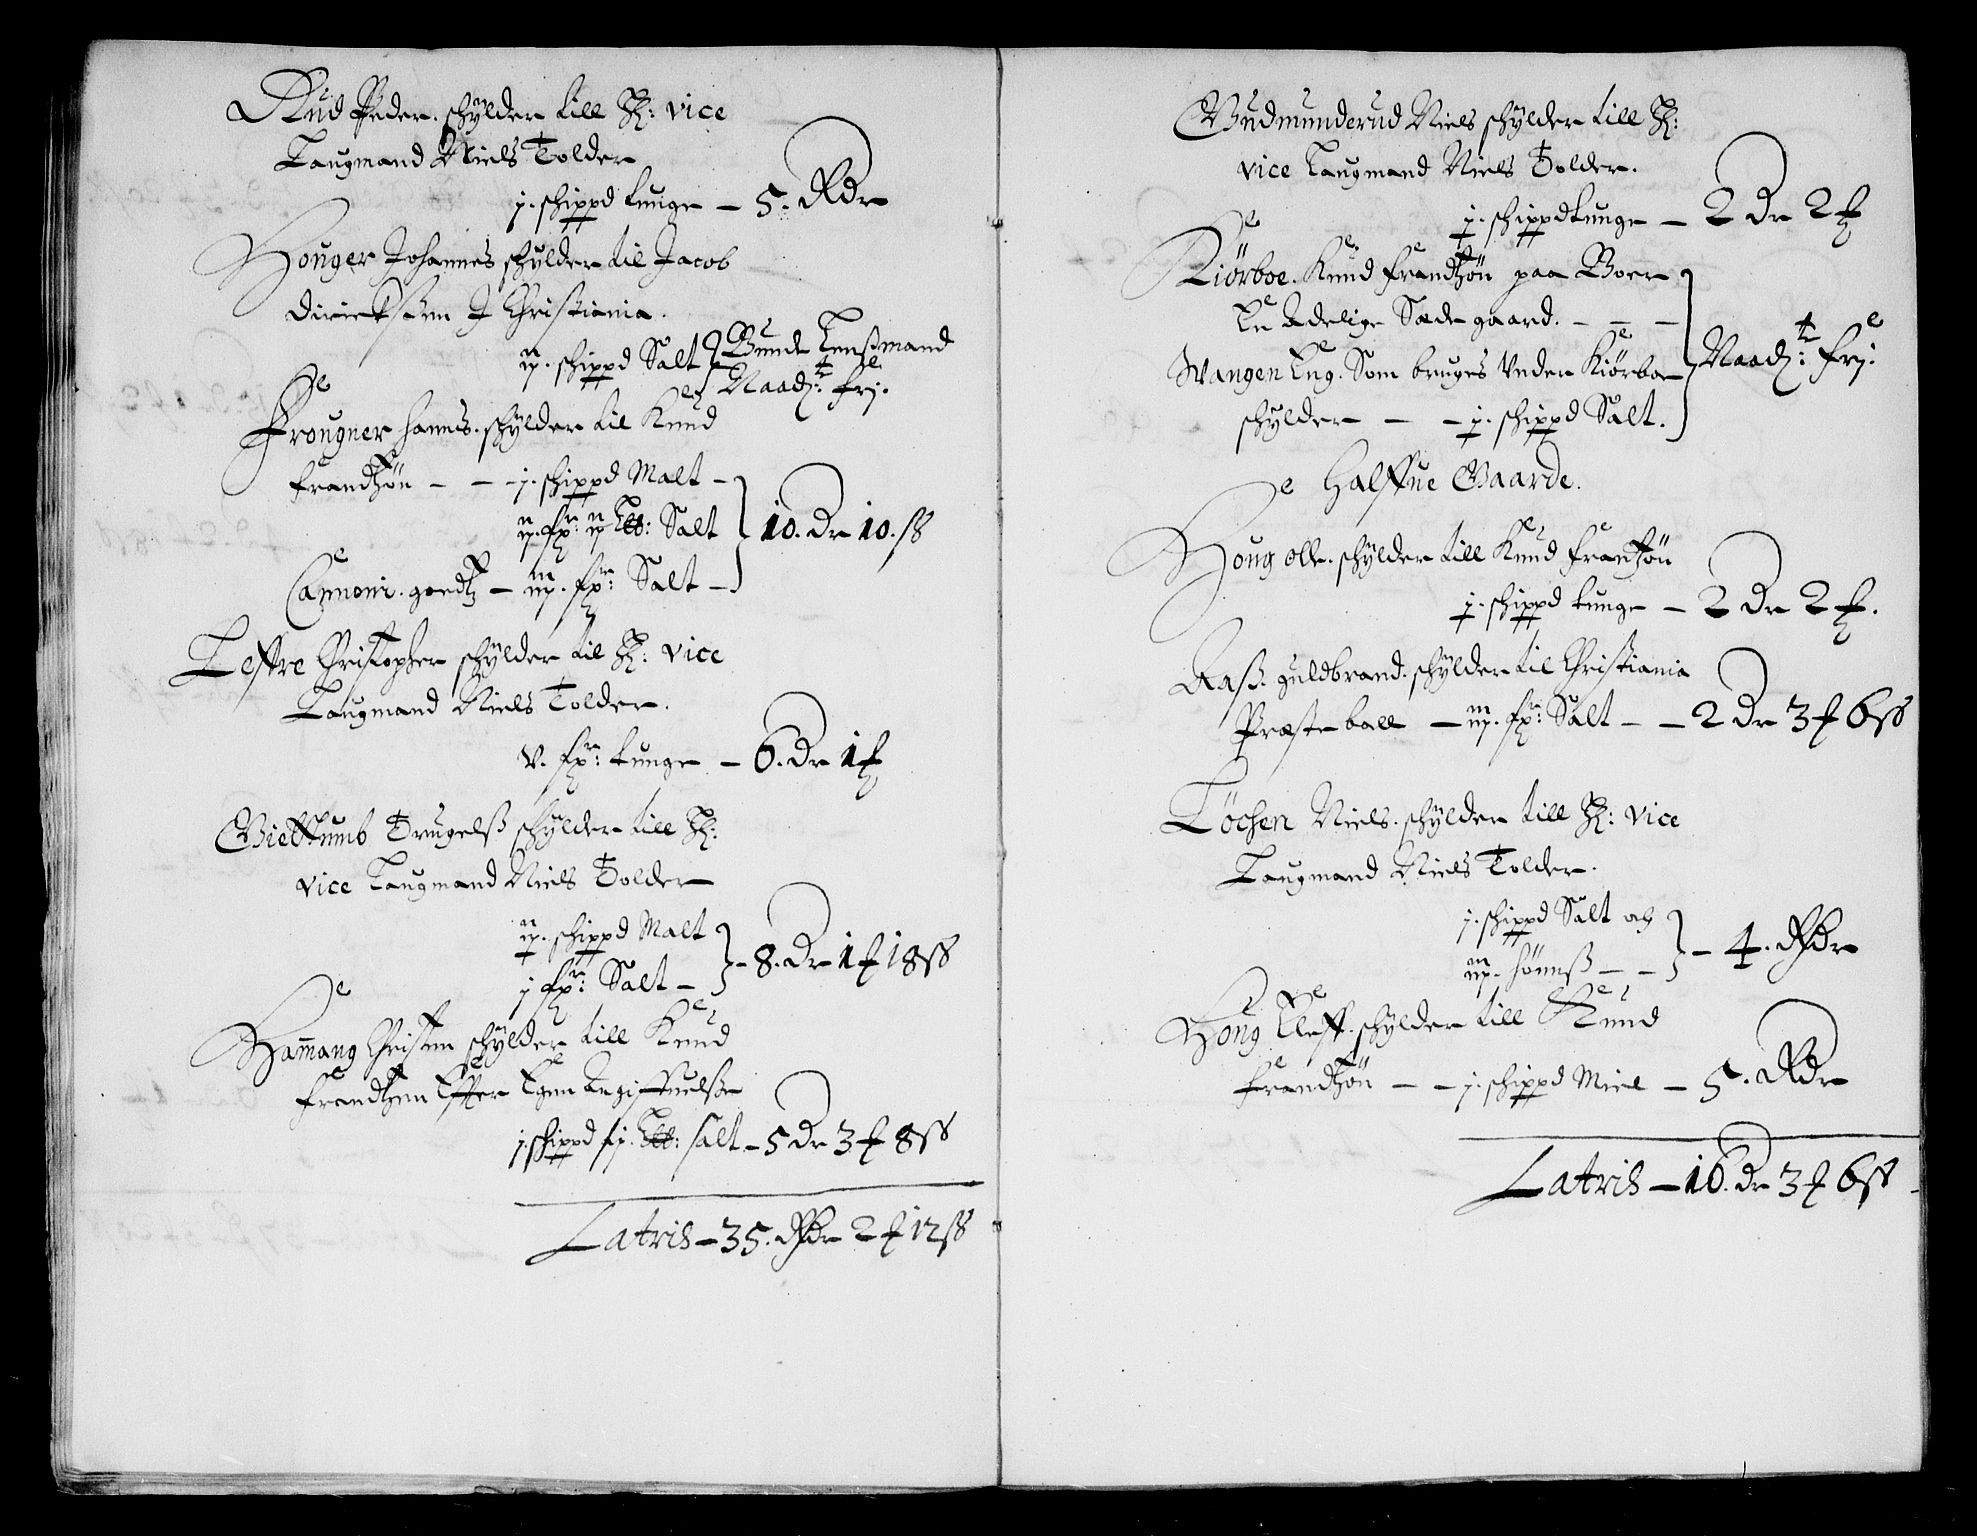 Rud Peder. schylder till H: vice
Laugmand Niels Tolder
j. schippd tunge – 5. Rdr
Houger Johannes schylder til Jacob
Dirichsen J Christiania.
ij. schippd Salt } Bunde Lenßmand
Naad: frj.
Frougner Hanns. schylder til Knud
frandtzön – – j. schippd Malt –
ij. fr: ij Lb: Salt } 10. Dr 10. ß
Cannoni. goedtz – iij. fr: Salt –
Lesfre Christopher schylder til H: vice
Laugmand Niels Tolder.
v. fr: tunge – 6. Dr 1
Gielttumb Trugelß schylder till H:
vice Laugmand Niels Tolder
ij. schippd Malt
j fr: Salt – } – 8. Dr 1 18 ß
Hamang Christen schylder till Knud
frandtzen Effter Egen Angiffuelße
j. schippd Lb: salt – 5 Dr 3 8 ß
Latris – 35. Rdr 2 12 ß
Gudmunderud Niels schylder till H:
vice Laugmand Niels Tolder.
j. schippd tunge – 2 Dr 2
Kiörboe. Knud frandtzön paa
En Adelige Sæde gaard. – – –
Wangen Eng. Som bruges Vnder Kiörboe } Naad: frj.
schylder – – j. schippd Salt.
Halffue Gaarde.
Houg Olle. schylder till Knud frantzön
j. schippd tunge – 2 Dr 2.
Aaß. guldbrand. schylder til Christiania
Præste boell – iij. fr: Salt – – 2 Dr 3 6 ß
Löchen Niels. schylder till H: vice
Laugmand Niels Tolder.
j. schippd Salt og
iij. hönnß – – } – 4. Rdr
Houg Eleff. schylder till Knud
frandtzön – – j. schippd Miel – 5. Rdr
Latris – 16. Dr 3 6 ß